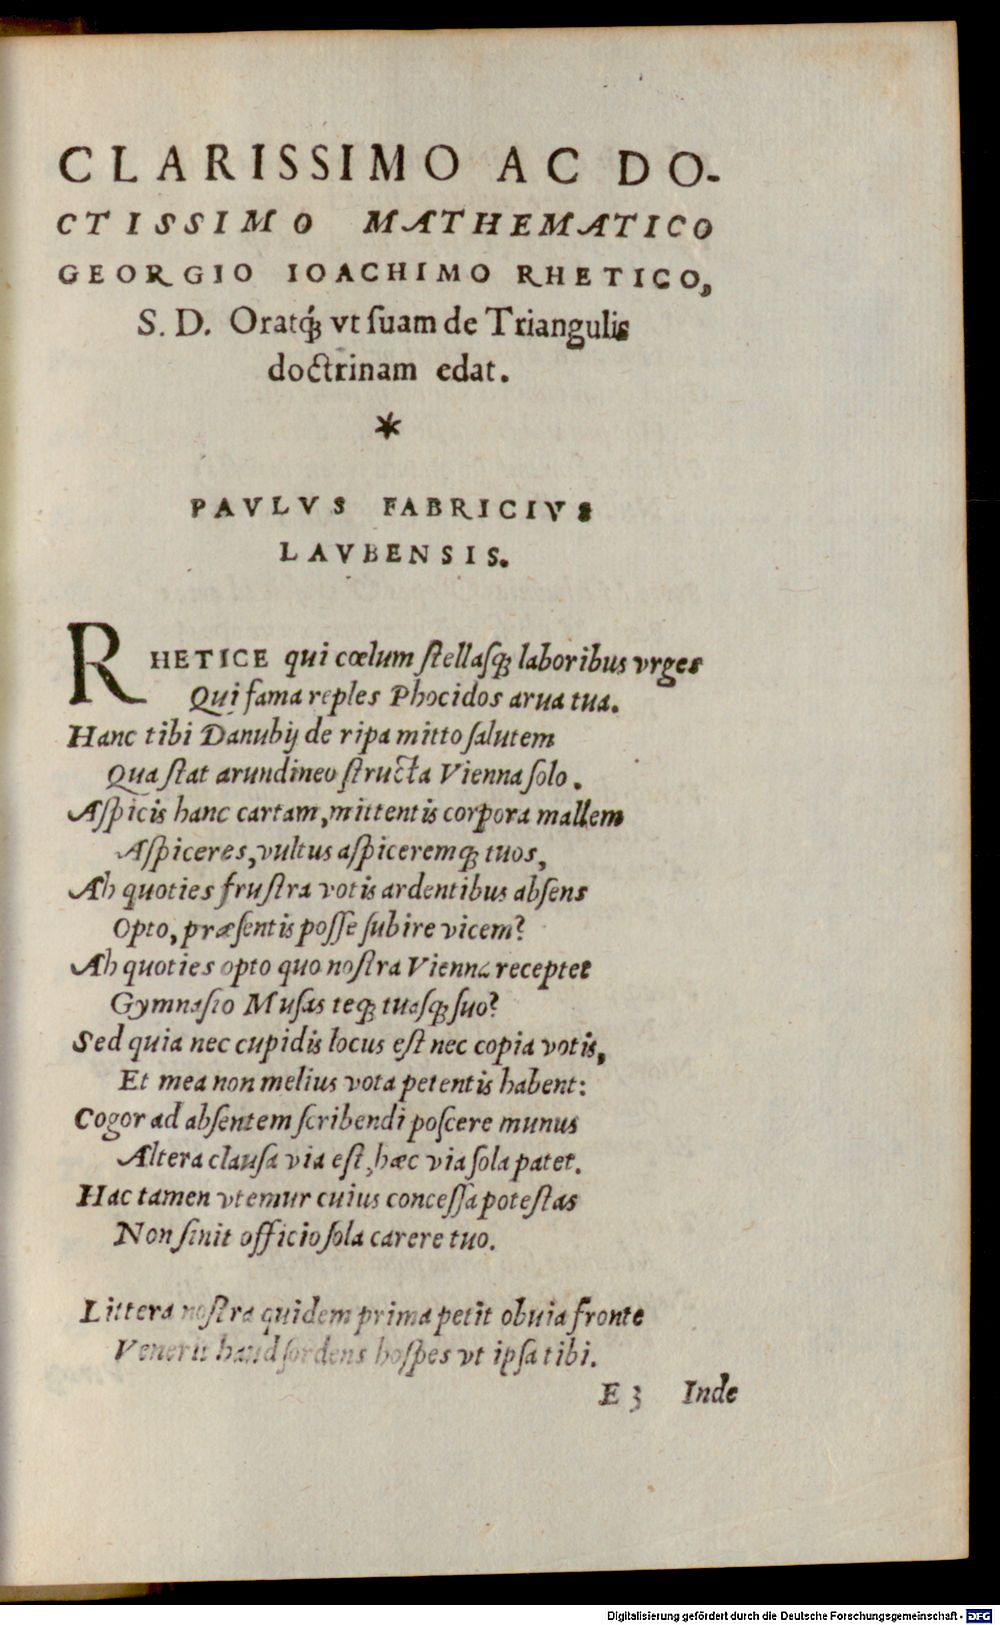 CLARISSIMO AC DO-
CTISSIMO MATHEMATICO
GEORGIO IOACHIMO RHETICO,
S. D. Oratq́ꝫ vt ſuam de Triangulis
doctrinam edat.
*
PAVLVS FABRICIVS
LAVBENSIS.
RHETICE qui cœlum ſtellaſqꝫ laboribus vrges
Qui fama reples Phocidos arua tua.
Hanc tibi Danubij de ripa mitto ſalutem
Qua ſtat arundineo ſtructa Vienna ſolo.
Aſpicis hanc cartam, mittentis corpora mallem
Aſpiceres, vultus aſpiceremqꝫ tuos,
Ah quoties fruſtra votis ardentibus abſens
Opto, præſentis poſſe ſubire vicem?
Ah quoties opto quo noſtra Vienna receptet
Gymnaſio Muſas teqꝫ tuaſqꝫ ſuo?
Sed quia nec cupidis locus eſt nec copia votis,
Et mea non melius vota petentis habent:
Cogor ad abſentem ſcribendi poſcere munus
Altera clauſa via eſt, hæc via ſola patet.
Hac tamen vtemur cuius conceſſa poteſtas
Non ſinit officio ſola carere tuo.
Littera noſtra quidem prima petit obuia fronte
Venerit haud ſordens hoſpes vt ipſa tibi.
E 3 Inde
Digitalisierung gefördert durch die Deutsche Forschungsgemeinschaft - DFG